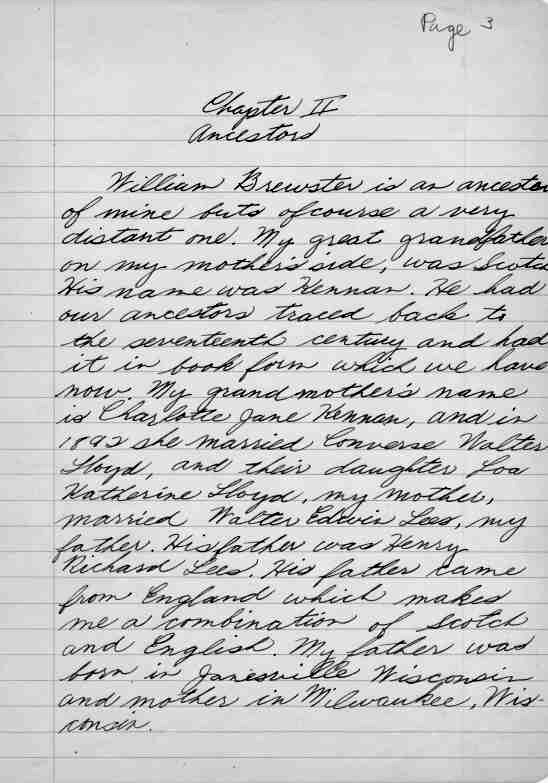 Page 3
Chapter II
Ancestors
William Brewster is an ancestor
of mine buts ofcourse a very
distant one. My great grandfather
on my mother's side, was Scotch
His name was Kennan. He had
our ancestors traced back to
the seventeenth century and had
it in book form which we have
now. My grandmother's name
is Charlotte Jane Kennan, and in
1892 she married Converse Walter
Lloyd, and their daughter Loa
Katherine Lloyd, my mother,
married Walter Edwin Lees, my
father. His father was Henry
Richard Lees. His father came
from England which makes
me a combination of Scotch
and English. My father was
born in Janesville Wisconsin
and mother in Milwaukee, Wis-
consin.